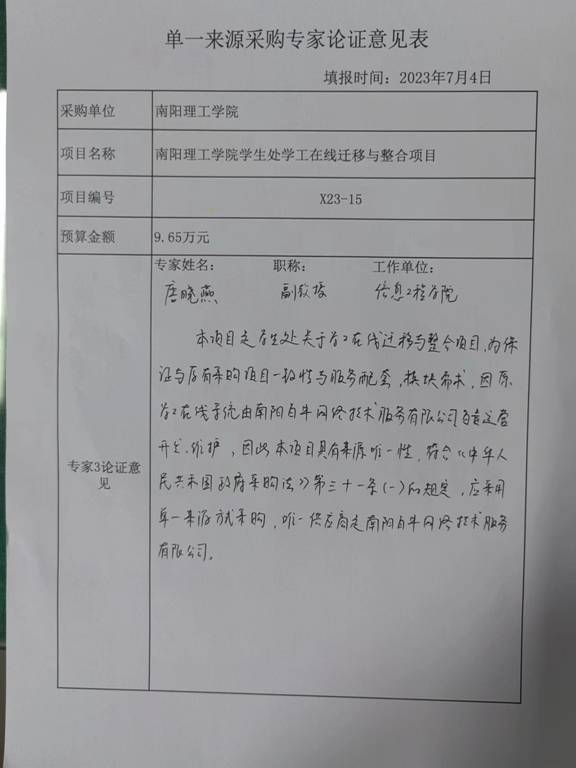 单一来源采购专家论证意见表
填报时间：2023年7月4日
采购单位 南阳理工学院
项目名称 南阳理工学院学生处学工在线迁移与整合项目
项目编号 X23-15
预算金额 9.65万元
专家姓名： 职称： 工作单位：
唐晓燕 副教授 信息工程学院
专家3论证意见
本项目是学生处关于学工在线迁移与整合项目,为保
证与原有采购项目一致性与服务配套,模块需求,因原
学工在线系统由南阳白牛网络技术服务有限公司负责运营
开发、维护,因此本项目具有来源唯一性,符合《中华人
民共和国政府采购法》第三十一条(一)的规定,应采用
单一来源方式采购,唯一供应商是南阳白牛网络技术服务
有限公司。